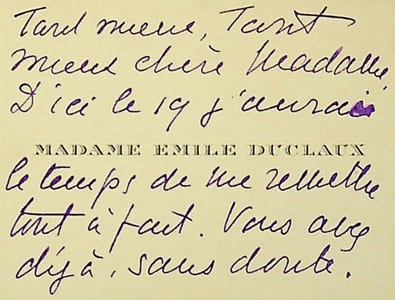 Tant mieux, Tant
mieux chère Madame,
D'ici le 19 j'aurai
MADAME EMILE DUCLAUX
le temps de me remettre
tout à fait. Vous avez
déjà, sans doute.